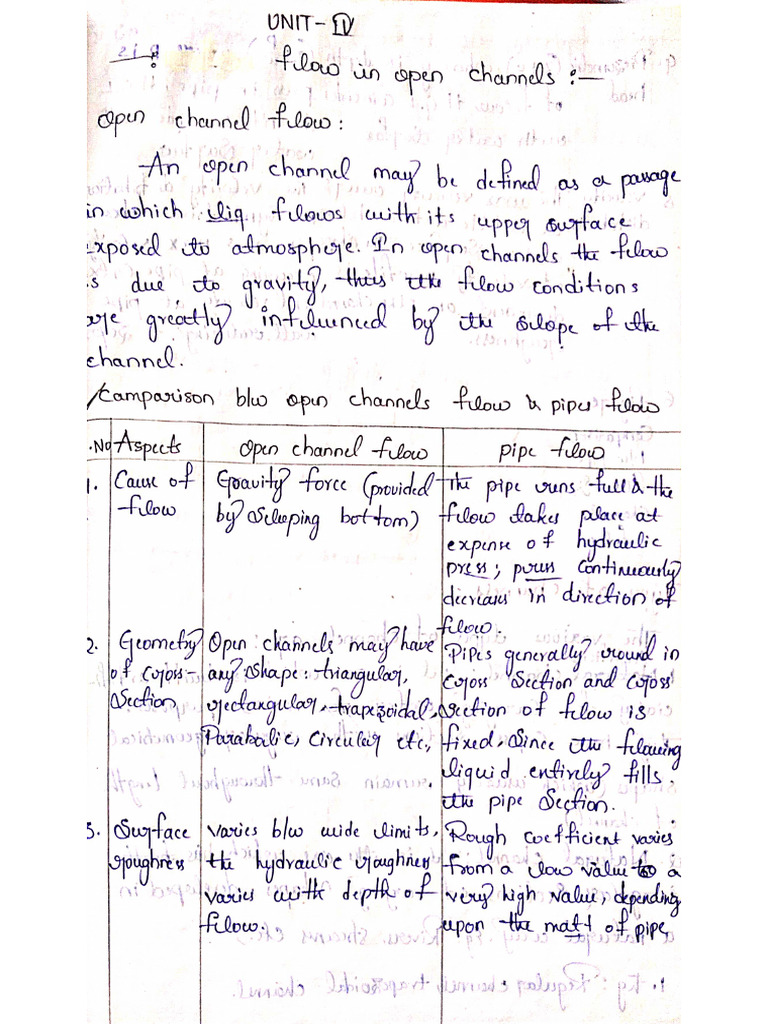 UNIT - IV
Flow in open channels :—
Open channel flow :
An open channel may be defined as a passage
in which liq. flows with its upper surface
exposed to atmosphere. In open channels the flow
is due to gravity, thus the flow conditions
are greatly influenced by the slope of the
channel.
Comparison b/w open channels flow & pipes flow
.No Aspects Open channel flow pipe flow
1. Cause of flow
Gravity force (provided
by slooping bottom)
The pipe runs full & the
flow takes place at
expense of hydraulic
press; press continuously
decreases in direction of
flow.
2. Geometry
of cross-
section
Open channels may have
any shape : triangular,
rectangular, trapezoidal,
Parabolic, circular etc.,
Pipes generally round in
cross section and cross
section of flow is
fixed, since the flowing
liquid entirely fills
the pipe section.
3. Surface
roughness
Varies b/w wide limits,
the hydraulic roughness
varies with depth of
flow.
Rough coefficient varies
from a low value to a
very high value, depending
upon the matt of pipe